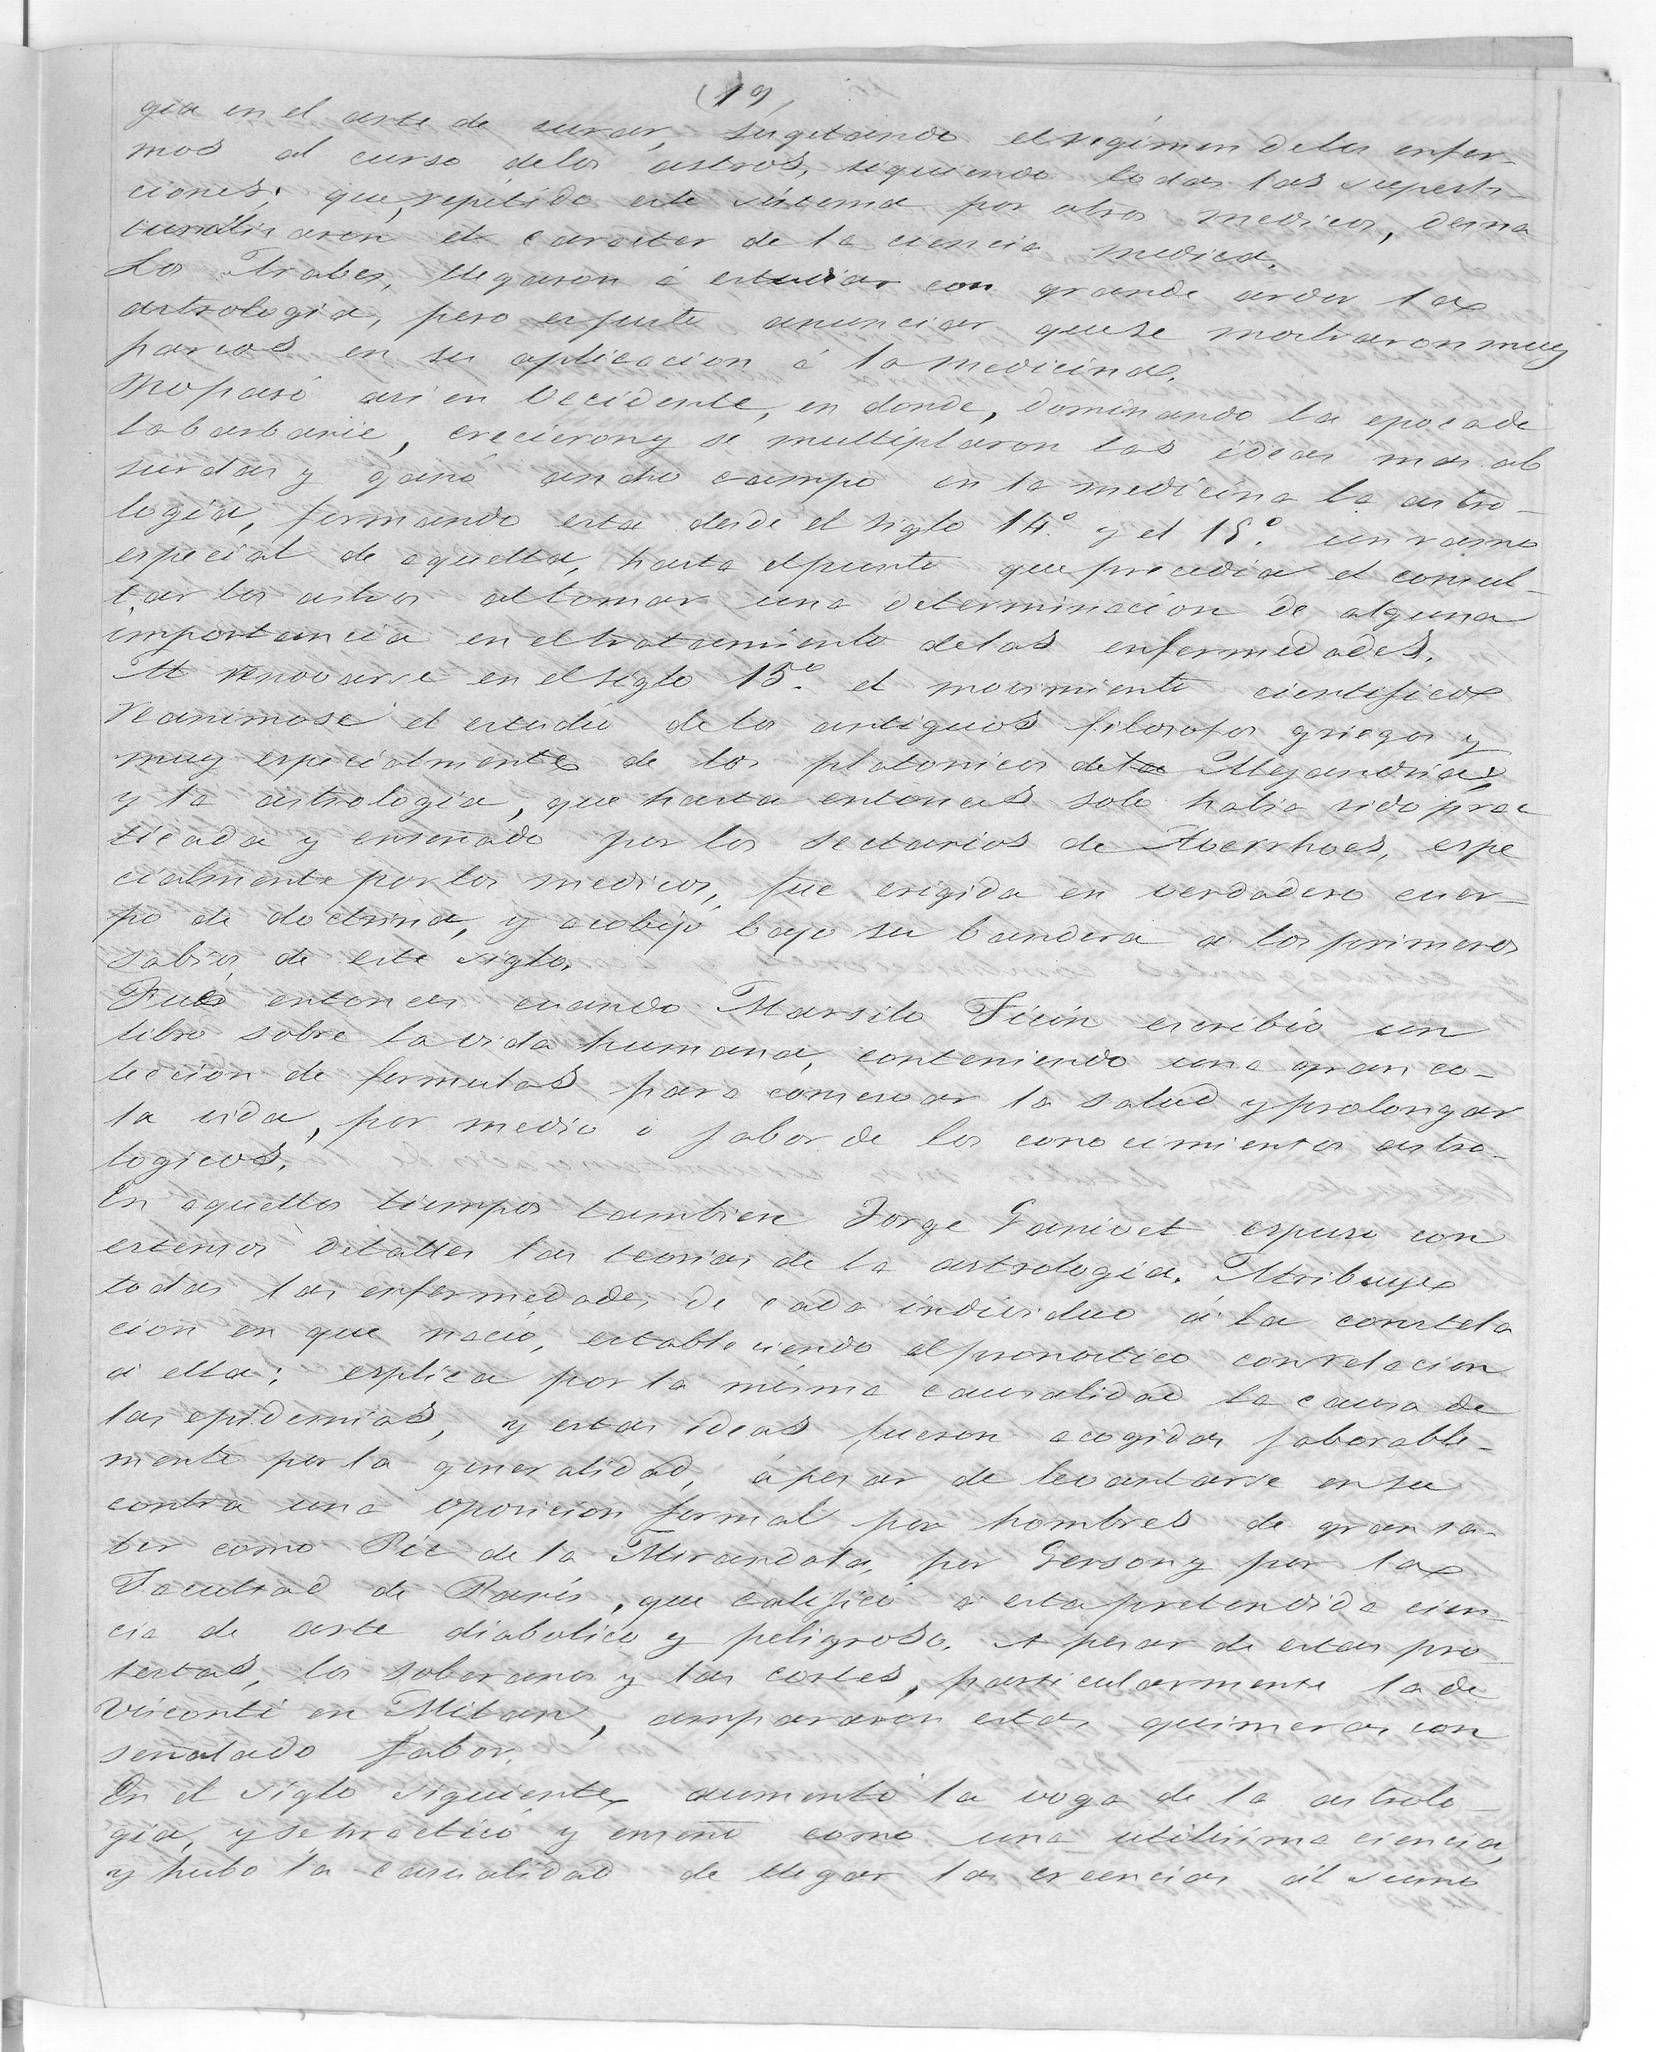 (19)
gia en el arte de curar, sugetando el régimen delos enfer-
mos al curso delos astros, siguiendo todas las supersti-
ciones; que, repetido este sistema por otros medicos, desna
turalizaron el caracter de la ciencia medica.
Los Arabes, llegaron á estudiar con grande ardor la
astrologia, pero es justo anunciar que se mostraron muy
parcos en su aplicacion á la medicina.
No pasó asi en Occidente, en donde, dominando la epoca de
la barbarie, crecieron y se multiplaron las ideas mas ab
surdas y ganó ancho campo en la medicina la astro-
logia, formando esta desde el siglo 14.º y el 15.º un ramo
especial de aquella, hasta el punto que precedia el consul-
tar los astros al tomar una determinacion de alguna
importancia en el tratamiento delas enfermedades.
Al renovarse en el siglo 15.º el movimiento cientifico
reanimose el estudio delos antiguos filosofos griegos y
muy especialmente de los platonicos de Alejandria;
y la astrologia, que hasta entonces solo habia sido prac
ticada y enseñado por los sectarios de Averrhoes, espe
cialmente por los medicos, fue erigida en verdadero cuer-
po de doctrina, y acobijó bajo su bandera a los primeros
sabios de este siglo.
Fué entonces cuando Marsilo Ficin escribió un
libro sobre la vida humana, conteniendo una gran co-
leccion de formulas para conservar la salud y prolongar
la vida, por medio o fabor de los conocimientos astro-
logicos.
En aquellos tiempos tambien Jorge Ganivet espuso con
estensos detalles las teorias de la astrologia. Atribuye
todas las enfermedades de cada individuo á la constela
cion en que nació, estableciendo el pronostico con relacion
a ella; esplica por la misma causalidad la causa de
las epidemias, y estas ideas fueron acogidas faborable-
mente por la generalidad, á pesar de levantarse en su
contra una oposicion formal por hombres de gran sa-
ber como Pic de la Mirandola, por Gerson y por la
Facultad de Paris, que calificó a esta pretendida cien-
cia de arte diabolico y peligroso. A pesar de estas pro
testas, los soberanos y las cortes, particularmente la de
Visconti en Milan, ampararon estas quimeras con
señalado fabor.
En el siglo siguiente aumentó la voga de la astrolo-
gia, y se practicó y enseñó como una utilisima ciencia,
y hubo la casualidad de llegar las creencias al sumo